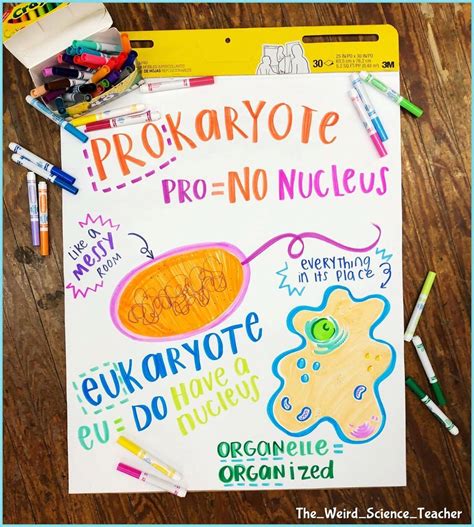 Crayola
25 IN/PO X 30 IN/PO
30
3M
PROKARYOTE
PRO=NO NUCLEUS
LIKE A
MESSY
ROOM
EVERYTHING
IN ITS PLACE
EUKARYOTE
EU= DO HAVE A
NUCLEUS
ORGANELLE =
ORGANIZED
The_Weird_Science_Teacher